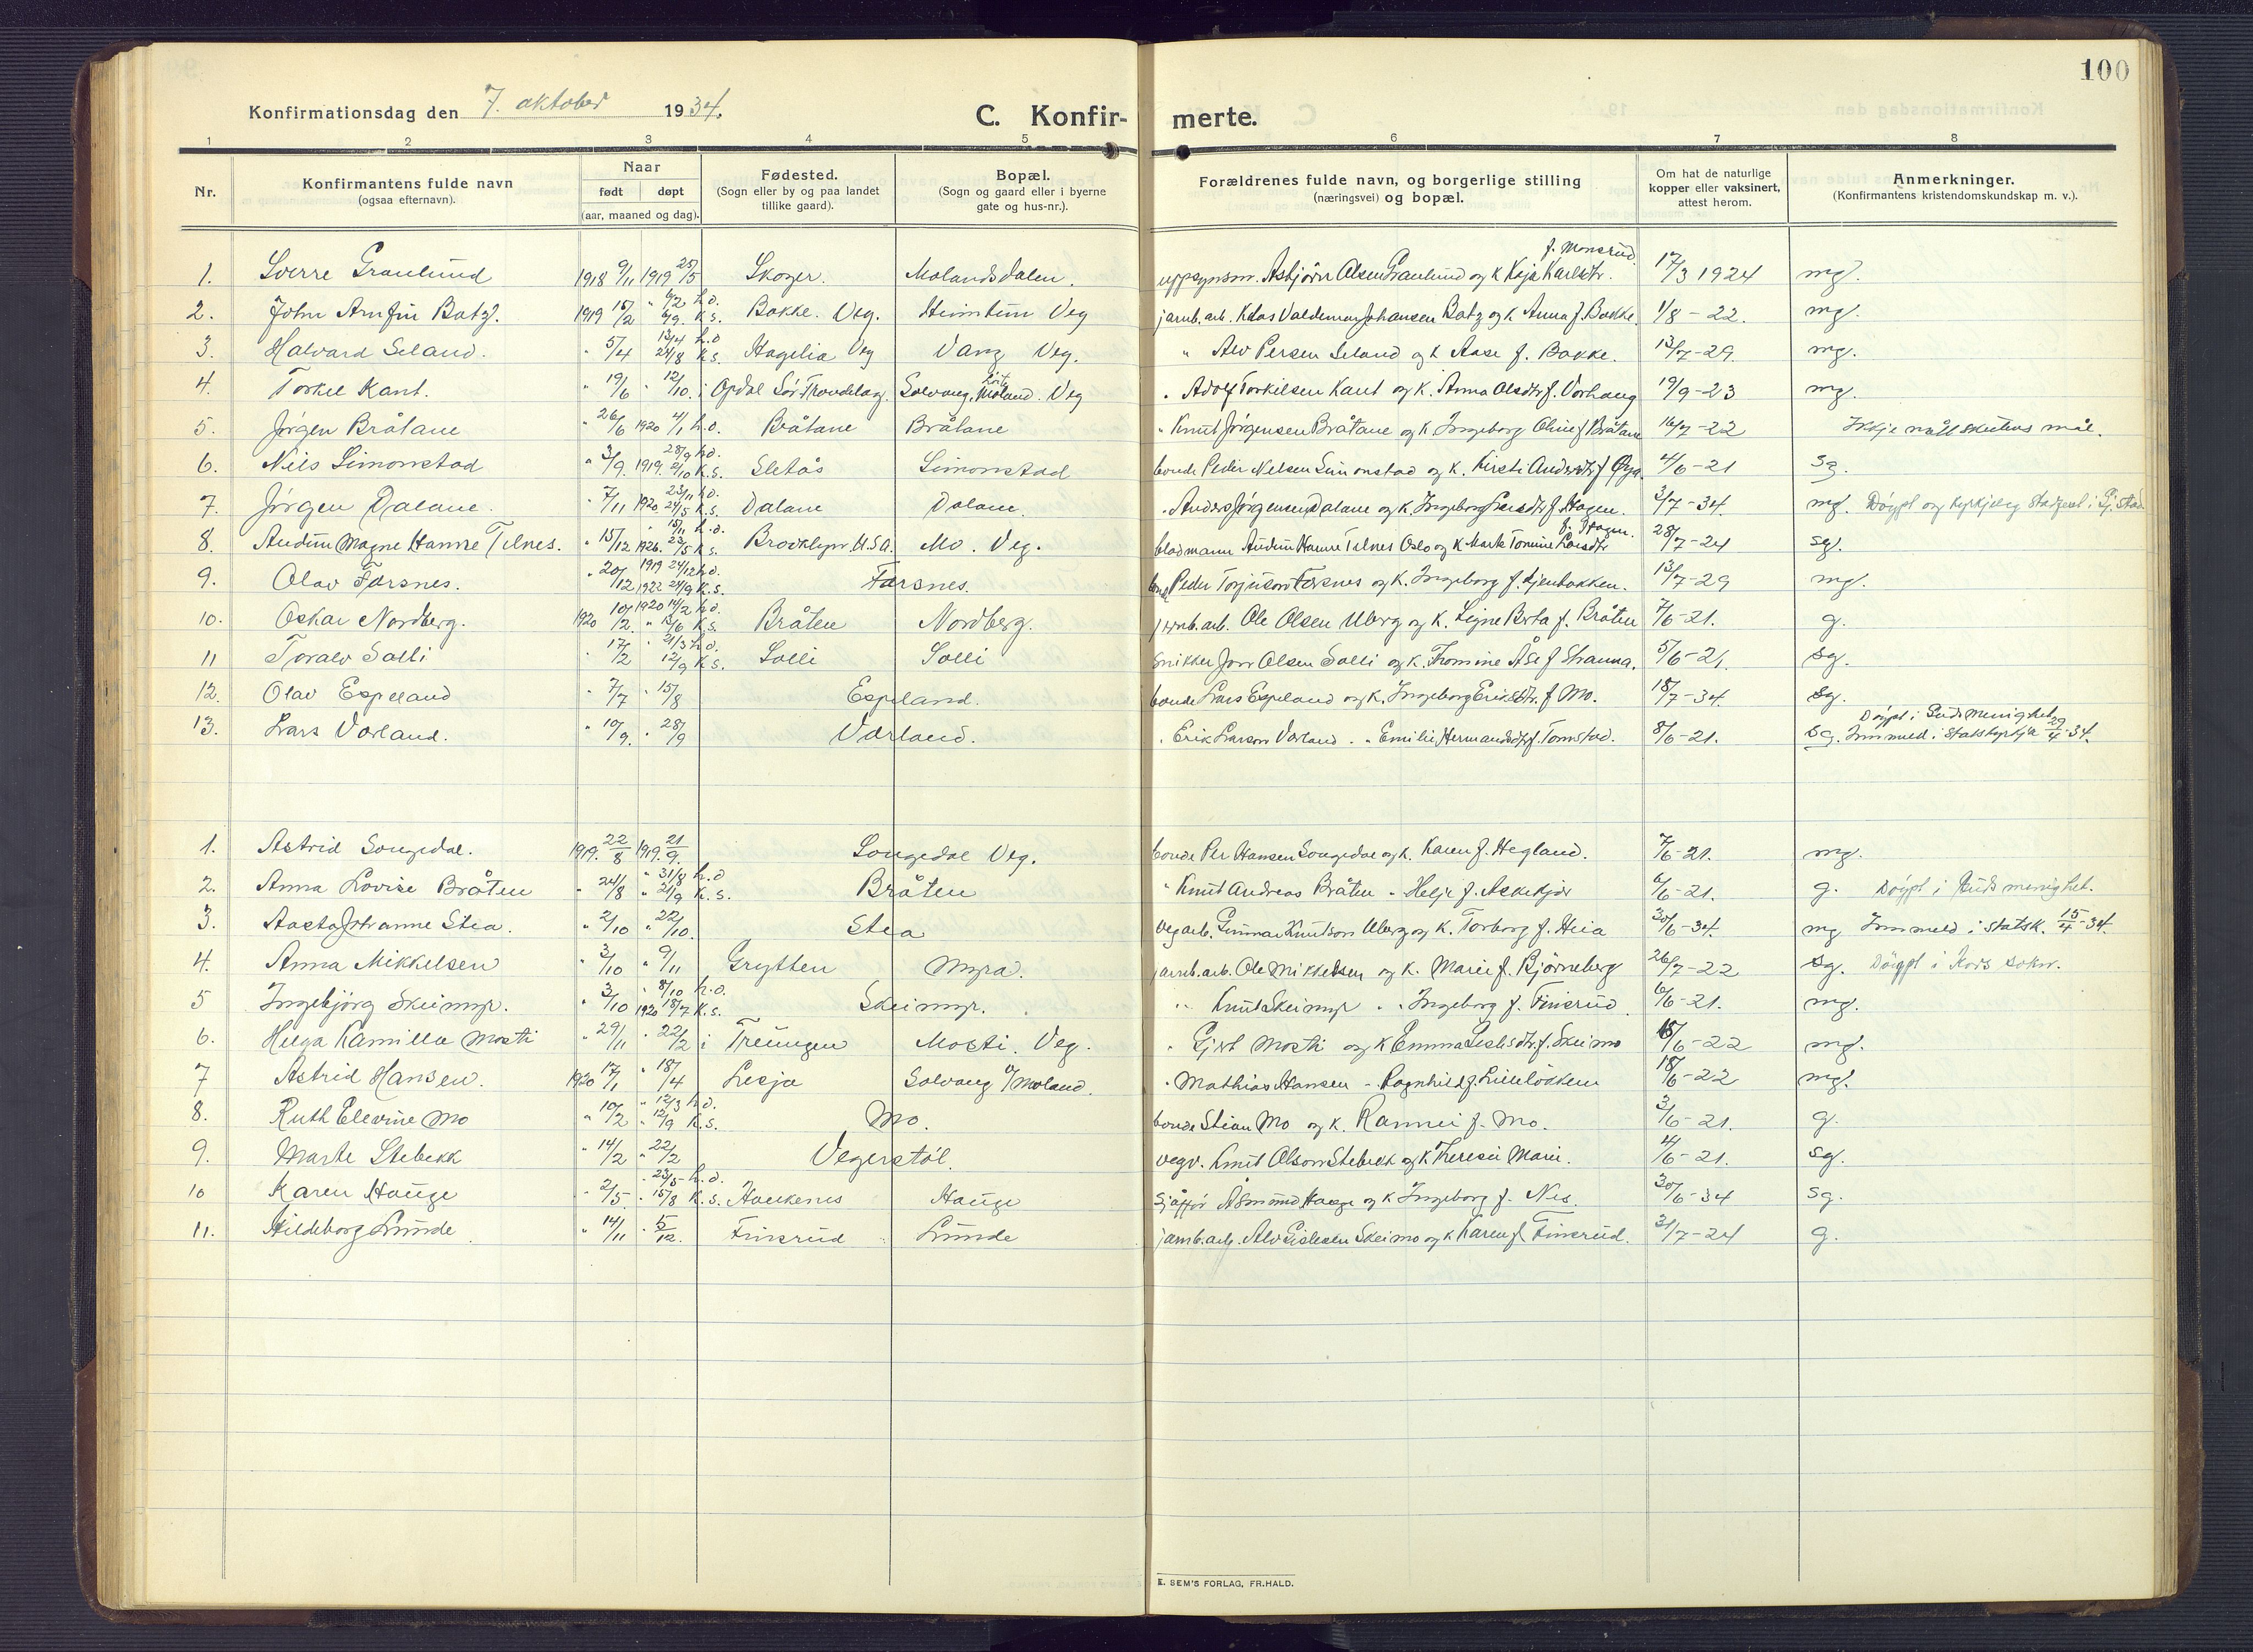 100
Konfirmationsdag den 7. oktober 1934.
C. Konfir- merte.
1 2 3 4 5 6 7 8
Nr.
Konfirmantens fulde navn
(ogsaa efternavn).
Naar
født døpt
(aar, maaned og dag).
Fødested.
(Sogn eller by og paa landet
tillike gaard).
Bopæl.
(Sogn og gaard eller i byerne
gate og hus-nr.).
Forældrenes fulde navn, og borgerlige stilling
(næringsvei) og bopæl.
Om hat de naturlige
kopper eller vaksinert,
attest herom.
Anmerkninger.
(Konfirmantens kristendomskundskap m. v.).
1. Sverre Granlund 1918 9/11 1919 25/5 Skoger. Molandsdalen. uppsynsm. Asbjörn Olsen Granlund og k Kaja Karlsdtr. f. Monsrud. 17/3 1924 mg.
2. John Arnfin Batz. 1919 15/2 " 6/2 h.d. 6/9. K.s. Bakke. Veg. Heimtun Veg jarnb.arb. Klas Valdemar Johansen Batz og k Anna f. Bakke. 1/8 - 22. mg.
3. Halvard Seland. " 5/4 13/4 h.d 24/8 K.s. Hagelia Veg Vang Veg. " Alv Persen Seland og k Aase f. Bakke. 13/7-29. mg.
4. Torkel Kant. " 19/6 " 12/10. i Opdal Sör-Trondelag. Solvang, Moland. Veg " Adolf Torkilsen Kant og k. Anna Olsdtr f. Vorhaug 19/9-23 mg.
5. Jörgen Bråtane " 26/6 1920 4/1 h.d. Bråtane Bråtane " Knut Jörgensen Bråtane og k. Ingeborg Oline f Bråtane 16/7-22 Ikkje nått skulens mål.
6. Nils Simonstad " 3/9. 1919. 28/9 h.d. 2/10 K.s. Sletås Simonstad bonde Peder Nelsen Simonstad og k. Kirsti Andersdtr f Öyg. 4/6-21 sg.
7. Jörgen Dalane. " 7/11 1920 23/11 h.d. 24/5 K.s. Dalane Dalane. " Anders Jörgensen Dalane og k. Ingeborg Larsdtr f. Hagen. 3/7-34. mg. Döypt og kyrkjeleg stadfest i Gj.stad.
8. Audun Magne Hanne Telnes. " 15/12 1926. 15/11 h.d. 23/5 K.s. Brooklyn. U.S.A. Mo. Veg. bladmann Audun Hanne Telnes Oslo og k Marte Tomine Larsdtr f. Hagen. 28/7-24 sg.
9. Olav Farsnes. " 20/12 1919 24/12 h.d. 1922 24/9 K.s. Farsnes. bonde Peder Torjuson Farsnes og k. Ingeborg f. Kjenbakken. 13/7-29 mg.
10. Oskar Nordberg. 1920 10/2 1920 14/2 h.d. " 13/6 K.s. Bråten Nordberg. jernb.arb. Ole Olsen Uberg og k. Signe Berta f. Bråten 7/6-21. g.
11 Toralv Solli " 17/2 " 21/3 h.d. 12/9 K.s. Solli Solli snikker Jorr Olsen Solli og k. Tromine Åse f Strauma. 5/6-21. sg.
12. Olav Espeland " 7/7 " 15/8 Espeland. bonde Lars Espeland og k. Ingeborg Eriksdtr. f Mo. 18/7-34. sg.
13. Lars Vorland. " 10/9. " 28/9 Vorland. " Erik Larson Vorland " " Emilie Hermansdtr f. Tomstad. 8/6-21. sg. Döypt i Guds menighet. Innmeld i statskyrkja 29/4-34.
1. Astrid Songedal. 1919. 22/8 1919. 21/9. Songedal Veg. bonde Per Hansen Songedal og k. Karen f. Hegland. 7/6-21. mg.
2. Anna Lovise Bråten " 24/8 " 31/8 h.d " 21/9 K.s. Bråten " Knut Andreas Bråten " Helje f. Askekjær 6/6-21. g. Döypt i Guds menighet.
3. Aasta Johanne Stea. " 2/10 " 22/10. Stea vegarb. Gunnar Knutson Uberg og k. Torborg f. Heia 30/6-34. mg Innmeld i statsk. 15/4-34.
4. Anna Mikkelsen " 3/10 " 9/11 Grytten Myra. jarnb.arb. Ole Mikkelsen og k. Marie f. Björneberg 26/7-22 sg. Döypt i Kors sokn.
5 Ingebjörg Skeimyr. " 3/10 " 8/10 h.d. 1920 18/7 K.s. Skeimyr. " " Knut Skeimyr " " Ingeborg f. Finsrud. 6/6-21. mg.
6. Helga Kamilla Mosti " 29/11 " 22/2 i Treungen Mosti. Veg. " Gjert Mosti og k Emma Gislesdtr. f. Skeimo 15/6-22 mg.
7 Astrid Hansen. 1920 17/1 " 18/4 Lesja Solvang u/Moland. " Mathias Hansen - Ragnhild f. Lillelökken 18/6-22 mg.
8. Ruth Elevine Mo " 10/2 " 12/3 h.d. " 12/9 K.s. Mo. bonde Stian Mo og k. Rannei f. Mo. 3/6-21. g.
9. Marte Stebekk " 14/2 " 22/2 Vegerstöl. vegv. Knut Olson Stebekk og k Teresie Marie. 4/6-21. sg.
10 Karen Hauge " 2/5. " 23/5 - h.d. " 15/8 K.s. Haukenes Hauge sjåffør Åsmund Hauge og k Ingeborg f. Nes. 30/6-34 sg.
11. Hildeborg Lunde " 14/11 " 5/12. Finsrud Lunde jarnb.arb. Alv Gislesen Skeimo og k Karen f. Finsrud. 31/7-24 g.
E. SEM'S FORLAG, FR.HALD.